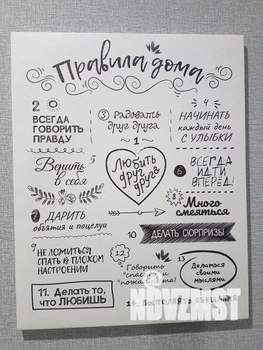 Правила дома
2 ВСЕГДА ГОВОРИТЬ ПРАВДУ
3 Радовать друг друга
4 НАЧИНАТЬ каждый день С УЛЫБКИ
1 Любить друг друга
Верить в себя 5
6 ВСЕГДА ИДТИ ВПЕРЕД!
7 ДАРИТЬ объятия и поцелуи
8 Много смеяться
9 НЕ ЛОЖИТЬСЯ СПАТЬ В ПЛОХОМ НАСТРОЕНИИ
10 ДЕЛАТЬ СЮРПРИЗЫ
11. Делать то, что ЛЮБИШЬ
12 Говорить "спасибо" и "пожалуйста"
13 Делиться своими мыслями
MDVZMST